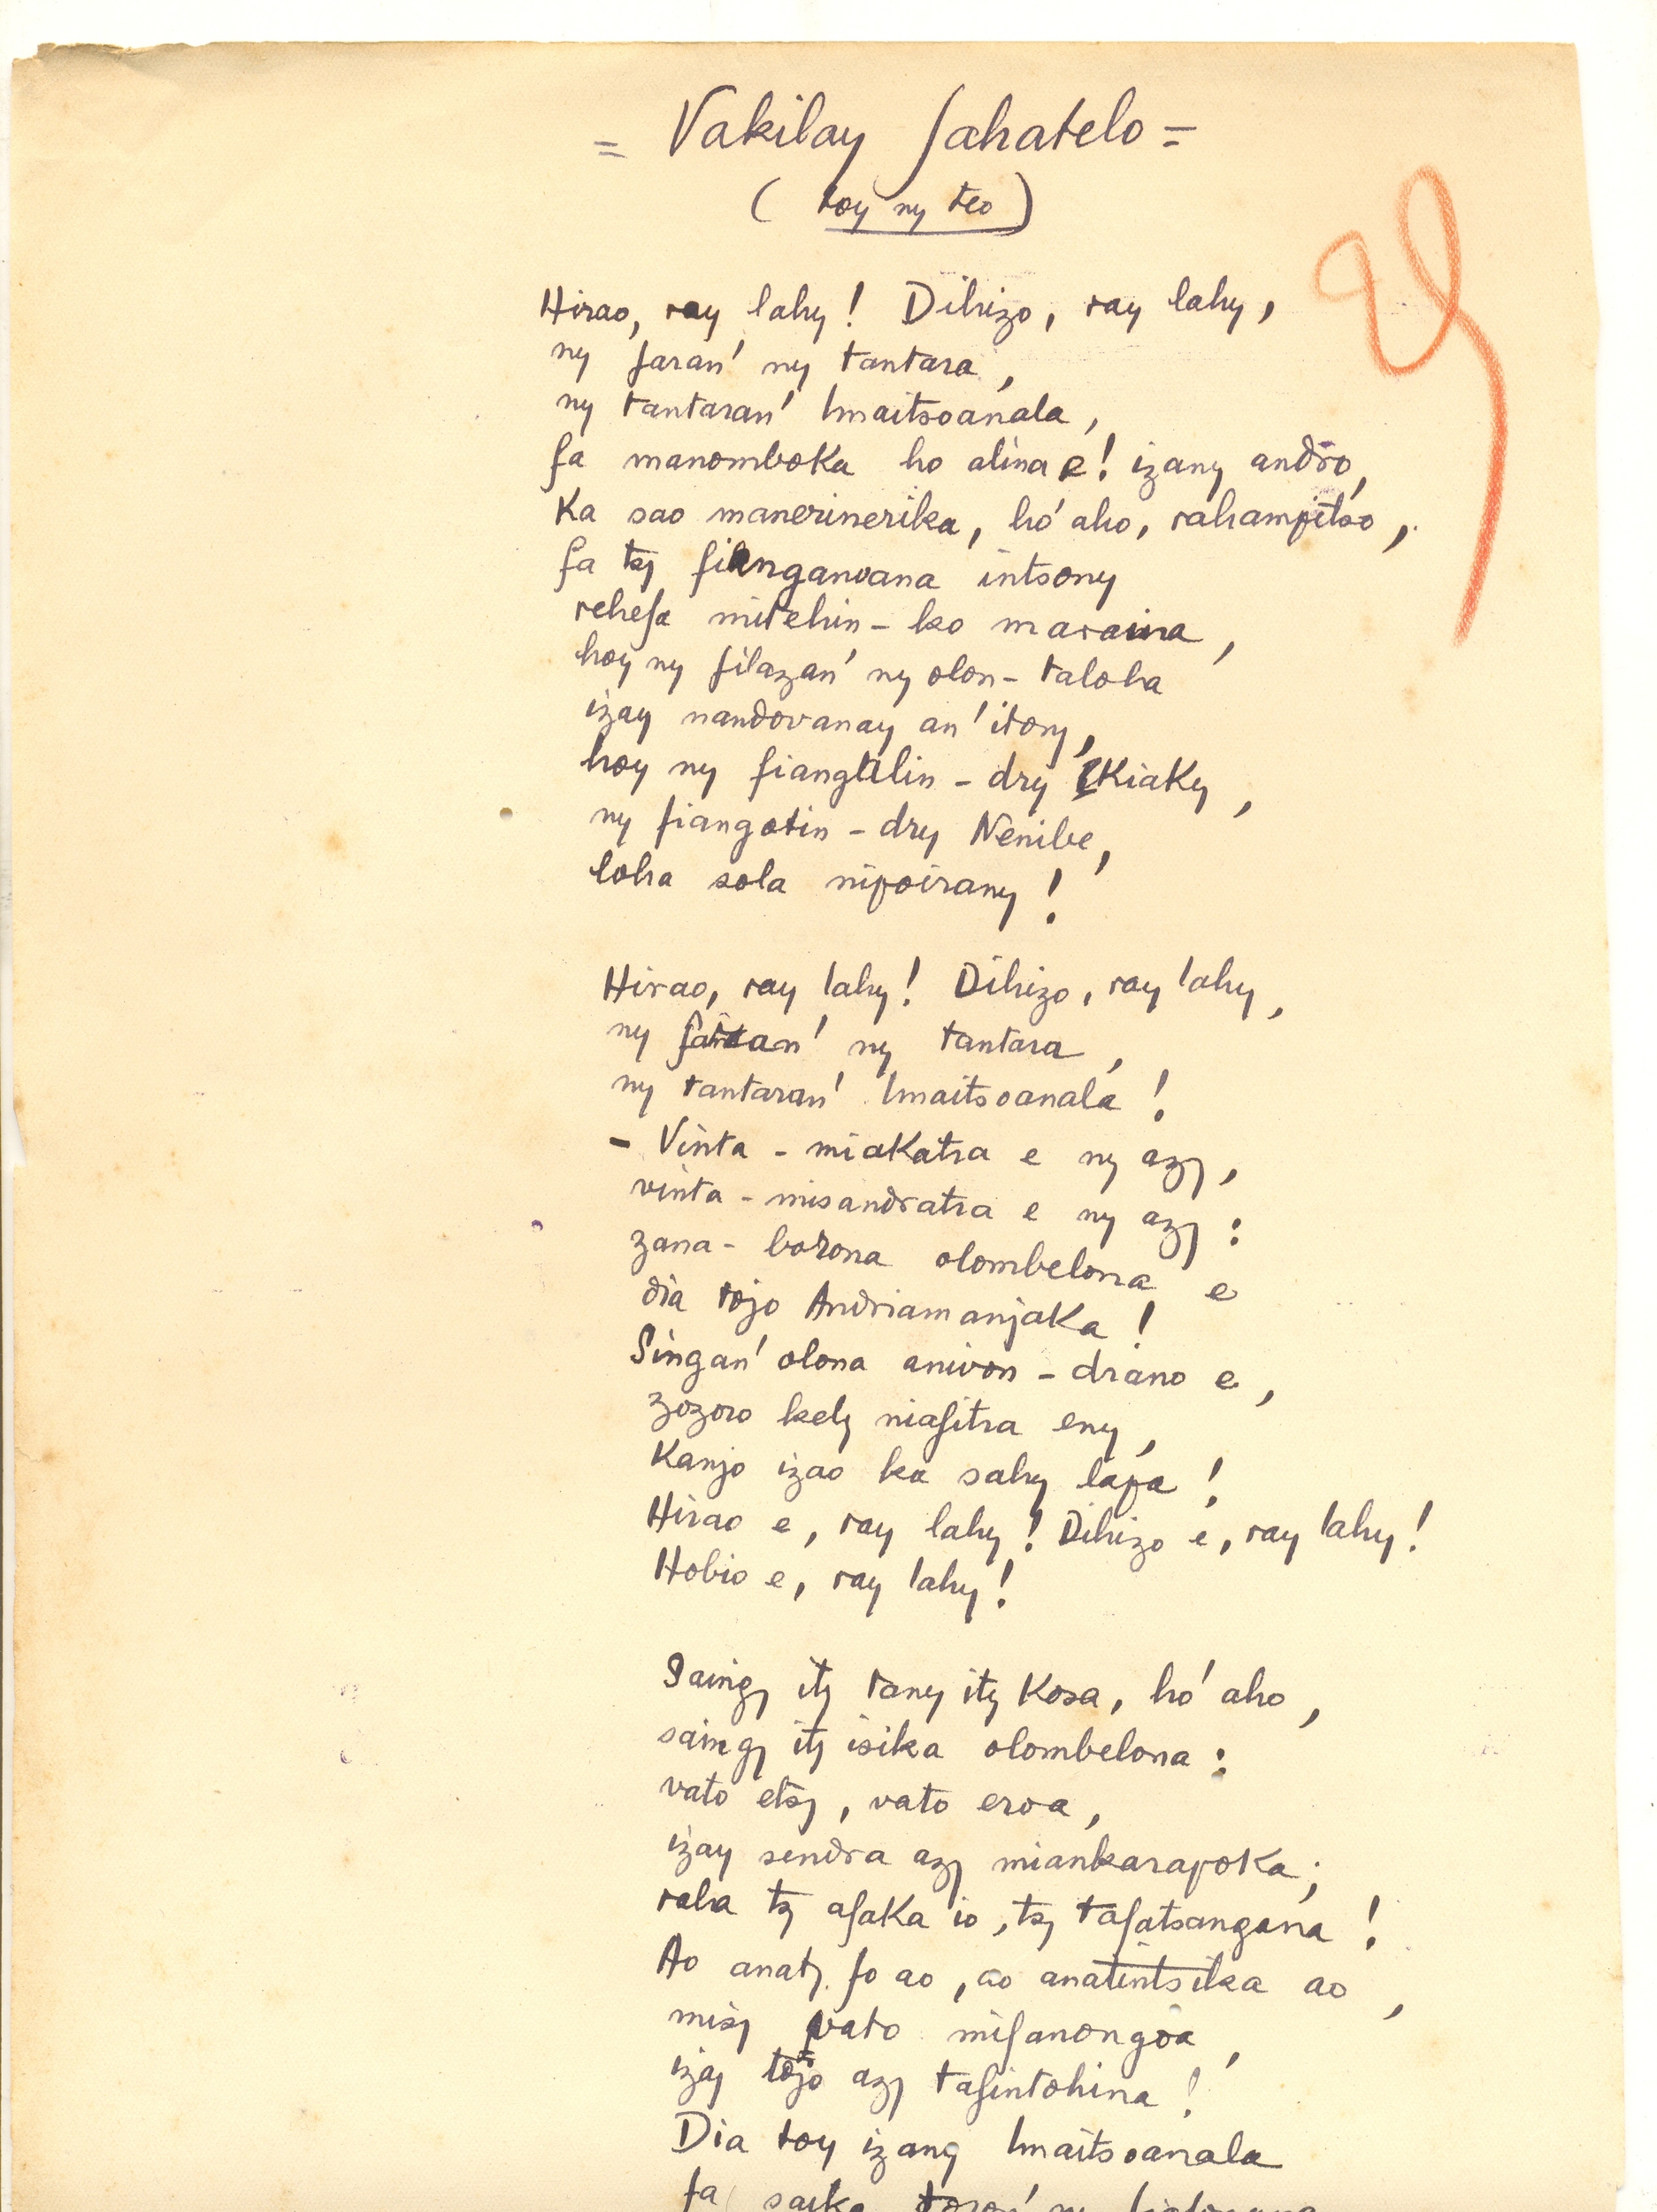 = Vakilay fahatelo =
( toy ny teo )
Hirao, ray lahy ! Dihizo, ray lahy,
ny faran' ny tantara,
ny tantaran' Imaitsoanala,
fa manomboka ho alina e ! izany andro,
Ka sao manerinerika, hó aho, rahampitso,
fa tsy fiangarana intsony
rehefa mitehin-ko maraina,
hoy ny filazan' ny olon-taloha
izay nandovanay an' itony,
hoy ny fiangtilin-dry IKiaky,
ny fiangotin-dry Nenibe,
loha sola nipoirany !
Hirao, ray lahy ! Dihizo, ray lahy,
ny faran' ny tantara,
ny tantaran' Imaitsoanala !
- Vinta-miakatra e ny azy,
vinta-misandratra e ny azy :
zana-borona olombelona e
dia tojo Andriamanjaka !
Singan' olona anivon-drano e,
zozoro kely niafitra eny,
Kanjo izao ka sahy lapa !
Hirao e, ray lahy ! Dihizo e, ray lahy !
Hobio e, ray lahy !
Saingy ity tany ity Kosa, hó aho,
saingy ity isika olombelona :
vato etsy, vato eroa,
izay sendra azy miankarapoka ;
raha tsy afaka io, tsy tafatsangana !
Ao anaty fo ao, ao anatintsika ao,
misy vato mifanongoa,
izay tojo azy tafintohina !
Dia toy izany Imaitsoanala
fa saika